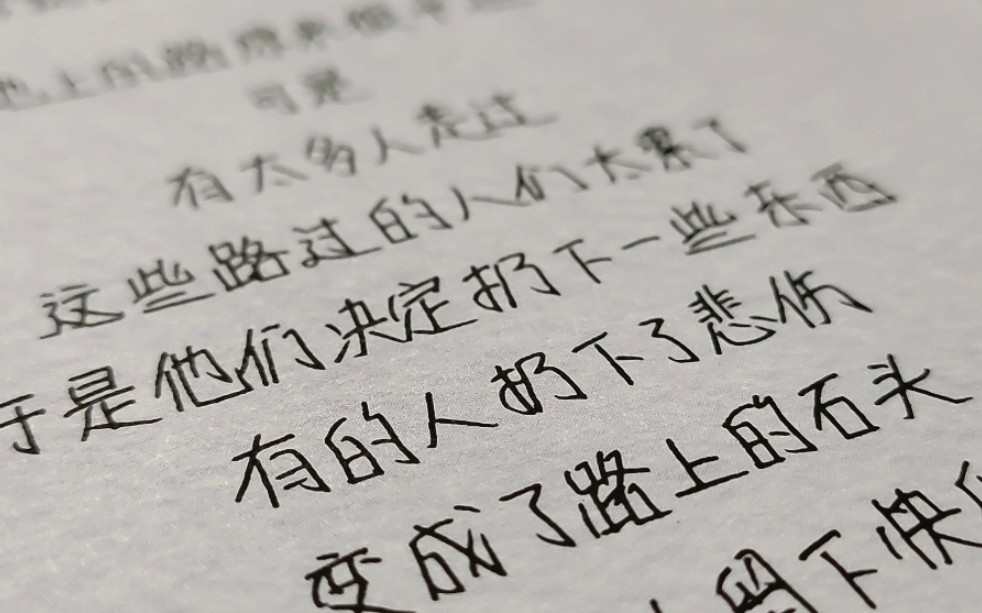 上的路原来很平
可是
有太多人走过
这些路过的人们太累了
于是他们决定扔下一些东西
有的人扔下了悲伤
变成了路上的石头
留下快